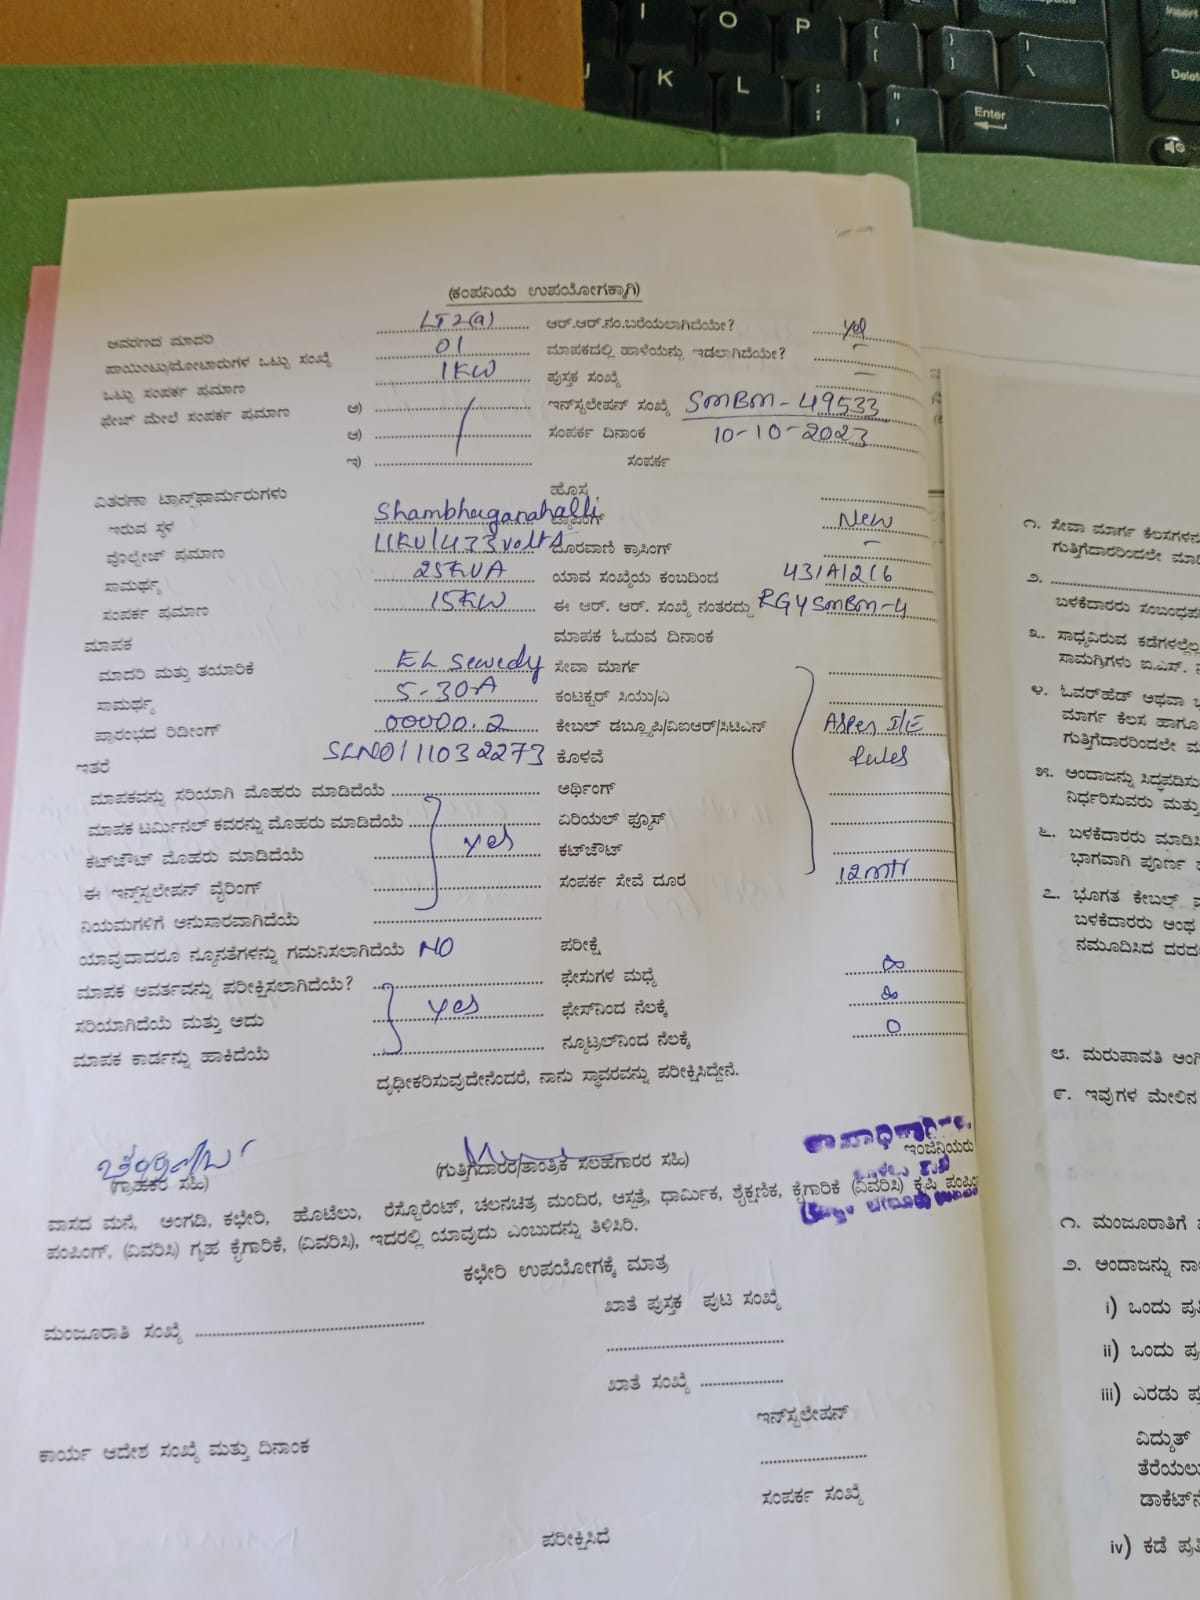 I O P { [ } ] | \ Insert
J K L : ; " ' Enter Delete
(ಕಂಪನಿಯ ಉಪಯೋಗಕ್ಕಾಗಿ)
ಆವರಣದ ಮಾದರಿ LT2(a) ಆರ್.ಆರ್.ನಂ.ಬರೆಯಲಾಗಿದೆಯೇ? yes
ಪಾಯಿಂಟು/ಮೋಟಾರುಗಳ ಒಟ್ಟು ಸಂಖ್ಯೆ 01 ಮಾಪಕದಲ್ಲಿ ಹಾಳೆಯನ್ನು ಇಡಲಾಗಿದೆಯೇ? -
ಒಟ್ಟು ಸಂಪರ್ಕ ಪ್ರಮಾಣ 1KW ಪುಸ್ತಕ ಸಂಖ್ಯೆ -
ಫೇಜ್ ಮೇಲೆ ಸಂಪರ್ಕ ಪ್ರಮಾಣ ಅ) ಇನ್‌ಸ್ಟಲೇಷನ್ ಸಂಖ್ಯೆ SMBM-49533
ಆ) ಸಂಪರ್ಕ ದಿನಾಂಕ 10-10-2023
ಇ) ಸಂಪರ್ಕ
ವಿತರಣಾ ಟ್ರಾನ್ಸ್‌ಫಾರ್ಮರುಗಳು ಹೊಸ
ಇರುವ ಸ್ಥಳ Shambhuganahalli ಟ್ಯಾಪಿಂಗ್ New
ವೊಲ್ಟೇಜ್ ಪ್ರಮಾಣ 11KV/433volts ದೂರವಾಣಿ ಕ್ರಾಸಿಂಗ್ -
ಸಾಮರ್ಥ್ಯ 25KVA ಯಾವ ಸಂಖ್ಯೆಯ ಕಂಬದಿಂದ 43/A/2/6
ಸಂಪರ್ಕ ಪ್ರಮಾಣ 15KW ಈ ಆರ್. ಆರ್. ಸಂಖ್ಯೆ ನಂತರದ್ದು RGYSMBM-4
ಮಾಪಕ ಮಾಪಕ ಓದುವ ದಿನಾಂಕ
ಮಾದರಿ ಮತ್ತು ತಯಾರಿಕೆ EL Sewedy ಸೇವಾ ಮಾರ್ಗ
ಸಾಮರ್ಥ್ಯ 5-30A ಕಂಟಕ್ಟರ್ ಸಿಯು/ಎ
ಪ್ರಾರಂಭದ ರಿಡೀಂಗ್ 00000.2 ಕೇಬಲ್ ಡಬ್ಲ್ಯೂಪಿ/ವಿಐಆರ್/ಸಿಟಿಎಸ್ Asper I/E
ಇತರೆ SLNO/11032273 ಕೊಳವೆ Rules
ಮಾಪಕವನ್ನು ಸರಿಯಾಗಿ ಮೊಹರು ಮಾಡಿದೆಯೆ ಅರ್ಥಿಂಗ್
ಮಾಪಕ ಟರ್ಮಿನಲ್ ಕವರನ್ನು ಮೊಹರು ಮಾಡಿದೆಯೆ ಏರಿಯಲ್ ಫ್ಯೂಸ್
ಕಟ್‌ಔಟ್ ಮೊಹರು ಮಾಡಿದೆಯೆ yes ಕಟ್‌ಔಟ್
ಈ ಇನ್ಸ್‌ಟಲೇಷನ್ ವೈರಿಂಗ್ ಸಂಪರ್ಕ ಸೇವೆ ದೂರ 12mtr
ನಿಯಮಗಳಿಗೆ ಅನುಸಾರವಾಗಿದೆಯೆ
ಯಾವುದಾದರೂ ನ್ಯೂನತೆಗಳನ್ನು ಗಮನಿಸಲಾಗಿದೆಯೆ NO ಪರೀಕ್ಷೆ
ಮಾಪಕ ಆವರ್ತವನ್ನು ಪರೀಕ್ಷಿಸಲಾಗಿದೆಯೆ? ಫೇಸುಗಳ ಮಧ್ಯೆ ∞
ಸರಿಯಾಗಿದೆಯೆ ಮತ್ತು ಅದು yes ಫೇಸ್‌ನಿಂದ ನೆಲಕ್ಕೆ ∞
ಮಾಪಕ ಕಾರ್ಡನ್ನು ಹಾಕಿದೆಯೆ ನ್ಯೂಟ್ರಲ್‌ನಿಂದ ನೆಲಕ್ಕೆ 0
ದೃಢೀಕರಿಸುವುದೇನೆಂದರೆ, ನಾನು ಸ್ಥಾವರವನ್ನು ಪರೀಕ್ಷಿಸಿದ್ದೇನೆ.
(ಗ್ರಾಹಕರ ಸಹಿ) (ಗುತ್ತಿಗೆದಾರರ/ತಾಂತ್ರಿಕ ಸಲಹೆಗಾರರ ಸಹಿ) ಇಂಜಿನಿಯರು
ವಾಸದ ಮನೆ, ಅಂಗಡಿ, ಕಛೇರಿ, ಹೊಟೆಲು, ರೆಸ್ಟೋರೆಂಟ್, ಚಲನಚಿತ್ರ ಮಂದಿರ, ಆಸ್ಪತ್ರೆ, ಧಾರ್ಮಿಕ, ಶೈಕ್ಷಣಿಕ, ಕೈಗಾರಿಕೆ (ವಿವರಿಸಿ) ಕೃಷಿ
ಪಂಪಿಂಗ್, (ವಿವರಿಸಿ) ಗೃಹ ಕೈಗಾರಿಕೆ, (ವಿವರಿಸಿ), ಇದರಲ್ಲಿ ಯಾವುದು ಎಂಬುದನ್ನು ತಿಳಿಸಿರಿ.
ಕಛೇರಿ ಉಪಯೋಗಕ್ಕೆ ಮಾತ್ರ
ಖಾತೆ ಪುಸ್ತಕ ಪುಟ ಸಂಖ್ಯೆ
ಮಂಜೂರಾತಿ ಸಂಖ್ಯೆ
ಖಾತೆ ಸಂಖ್ಯೆ
ಇನ್‌ಸ್ಟಲೇಷನ್
ಕಾರ್ಯ ಆದೇಶ ಸಂಖ್ಯೆ ಮತ್ತು ದಿನಾಂಕ
ಸಂಪರ್ಕ ಸಂಖ್ಯೆ
ಪರೀಕ್ಷಿಸಿದೆ
೧. ಸೇವಾ ಮಾರ್ಗ
ಗುತ್ತಿಗೆದಾರರಿಂದಲೇ
೨.
ಬಳಕೆದಾರರು
೩. ಸಾಧ್ಯವಿರುವ
ಸಾಮಗ್ರಿಗಳು
೪. ಓವರ್‌ಹೆಡ್ ಅಥವಾ
ಮಾರ್ಗ ಕೆಲಸ ಹಾಗೂ
ಗುತ್ತಿಗೆದಾರರಿಂದಲೇ
೫. ಅಂದಾಜನ್ನು
ನಿರ್ಧರಿಸುವರು ಮತ್ತು
೬. ಬಳಕೆದಾರರು
ಭಾಗವಾಗಿ ಪೂರ್ಣ
೭. ಭೂಗತ ಕೇಬಲ್
ಬಳಕೆದಾರರು ಅಂಥ
ನಮೂದಿಸಿದ
೮. ಮರುಪಾವತಿ
೯. ಇವುಗಳ ಮೇಲಿನ
೧. ಮಂಜೂರಾತಿಗೆ
೨. ಅಂದಾಜನ್ನು
i) ಒಂದು
ii) ಒಂದು
iii) ಎರಡು
ವಿದ್ಯುತ್
iv) ಕಡೆ